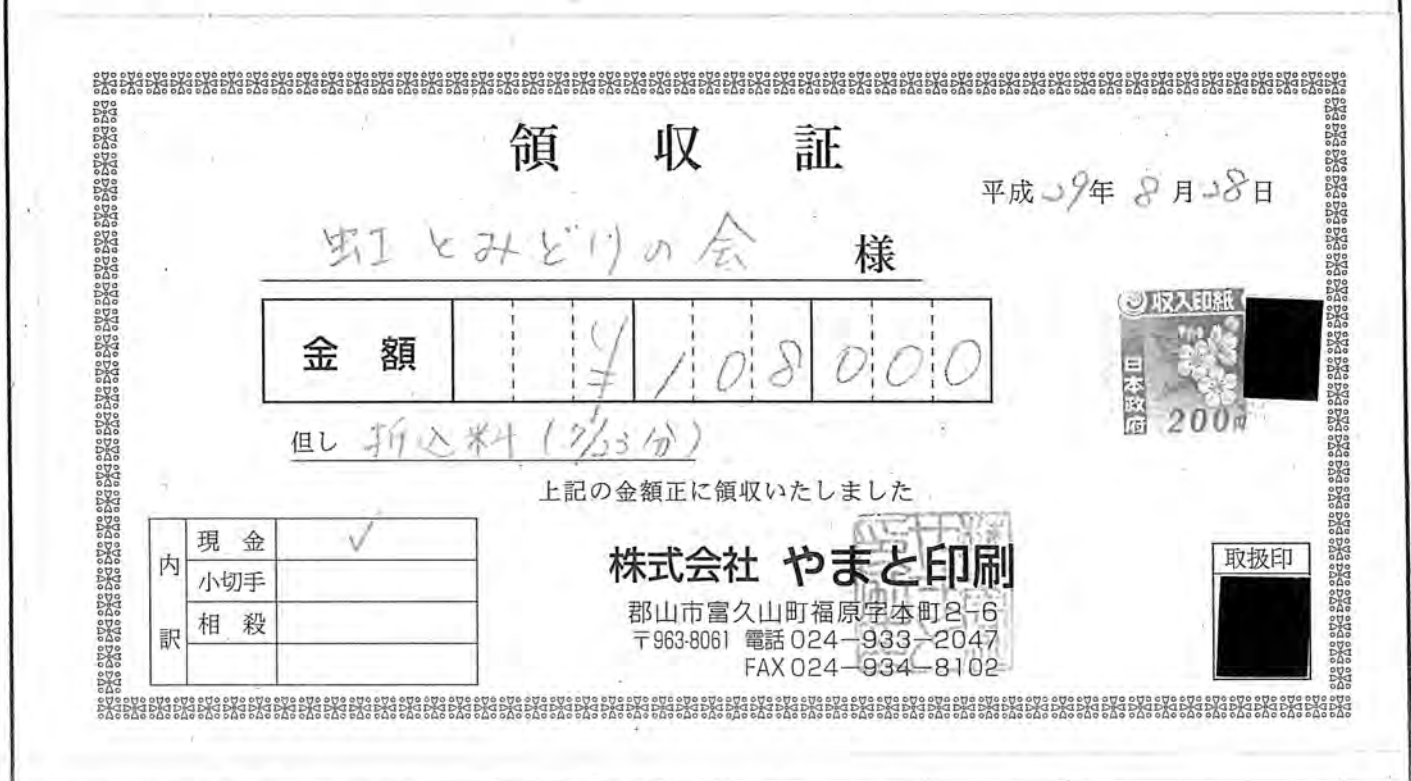 領 収 証
平成29年 8月28日
虹とみどりの会 様
金 額 ¥108000
但し 折込料(7/23分)
上記の金額正に領収いたしました
内訳
現 金 ✓
小切手
相 殺
株式会社 やまと印刷
郡山市富久山町福原字本町2-6
〒963-8061 電話024-933-2047
FAX 024-934-8102
収入印紙
日本政府
200円
取扱印